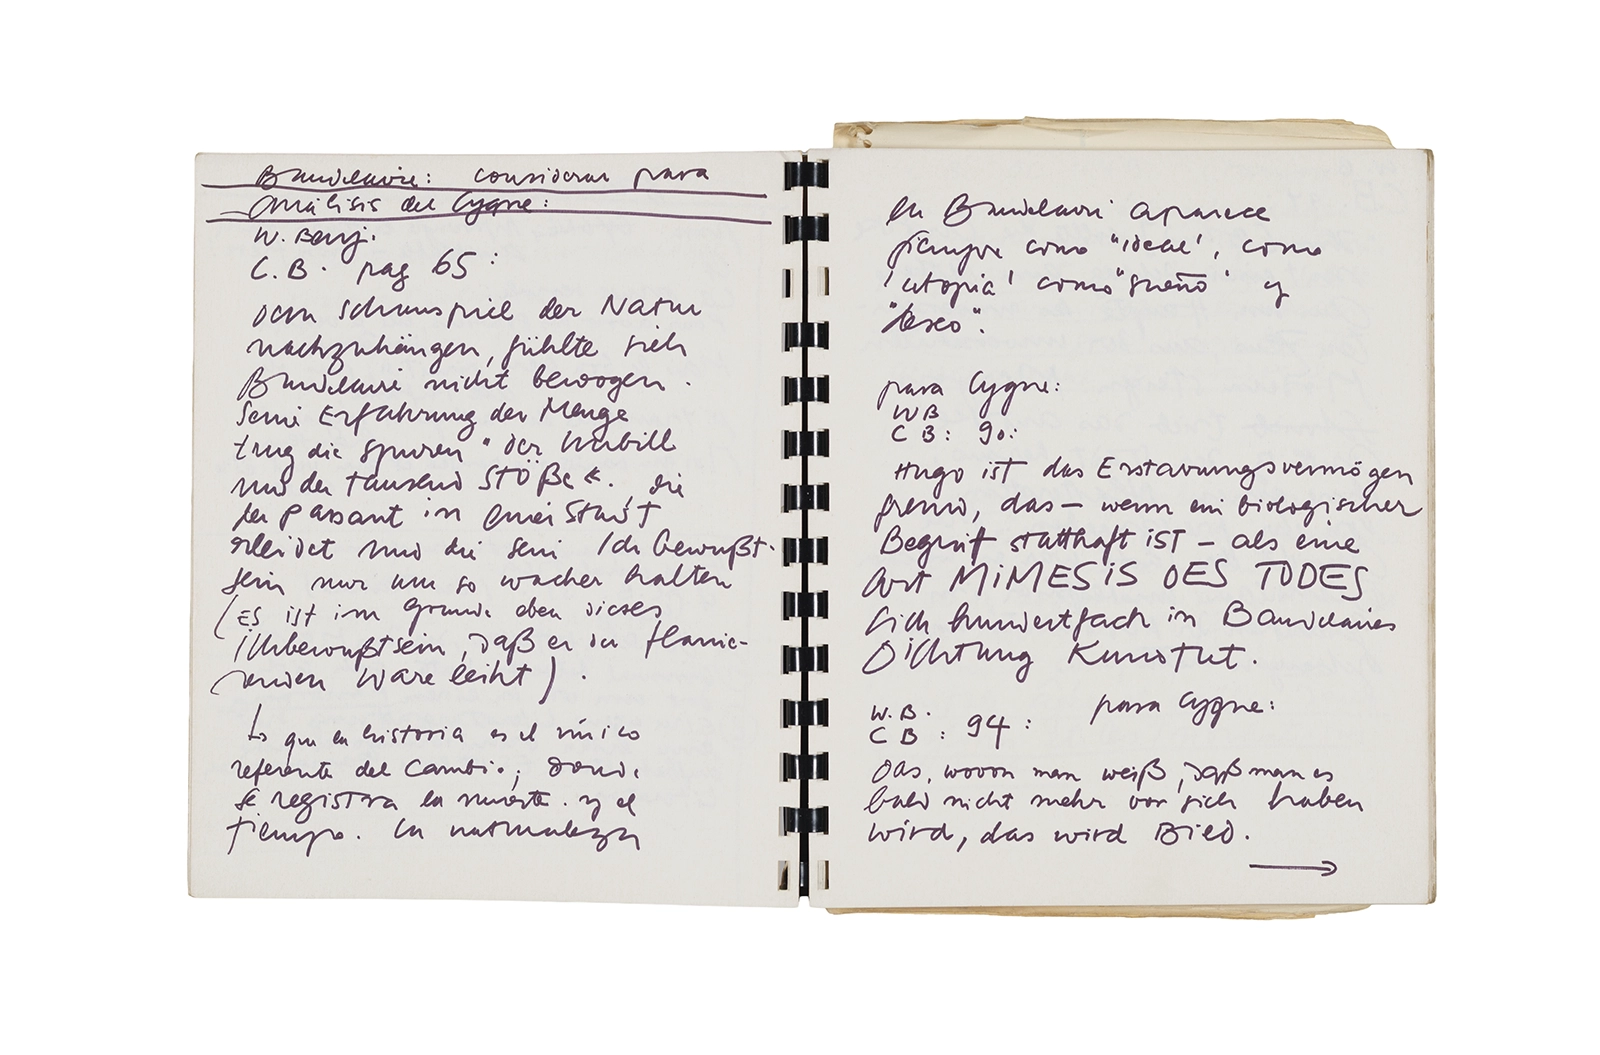 Baudelaire: considerar para
Análisis del Cygne:
W. Benj.
C.B. pag 65:
dem Schauspiel der Natur
nachzuhängen, fühlte sich
Baudelaire nicht bewogen.
Seine Erfahrung der Menge
trug die Spuren "der Unbill
und der tausend STÖßE«, die
der Passant in einer Stadt
erleidet und die sein Ich bewußt-
sein nur um so wacher halten
(ES ist im Grunde eben dieses
Ichbewußtsein, daß er der flanie-
renden Ware leiht).
Lo que en historia es el único
referente del Cambio; donde
se registra la muerte. y el
tiempo. La naturaleza
en Baudelaire aparece
siempre como "ideal", como
'utopia' como "sueño" y
"deseo".
para Cygne:
WB
CB: 90:
Hugo ist das Erstarrungsvermögen
fremd, das — wenn ein biologischer
Begriff statthaft iST — als eine
Art MiMESiS DES TODES
sich hundertfach in Baudelaires
Dichtung Kundtut.
W.B.
CB: 94: para Cygne:
Das, wovon man weiß, daß man es
bald nicht mehr vor sich haben
wird, das wird BilD.
→